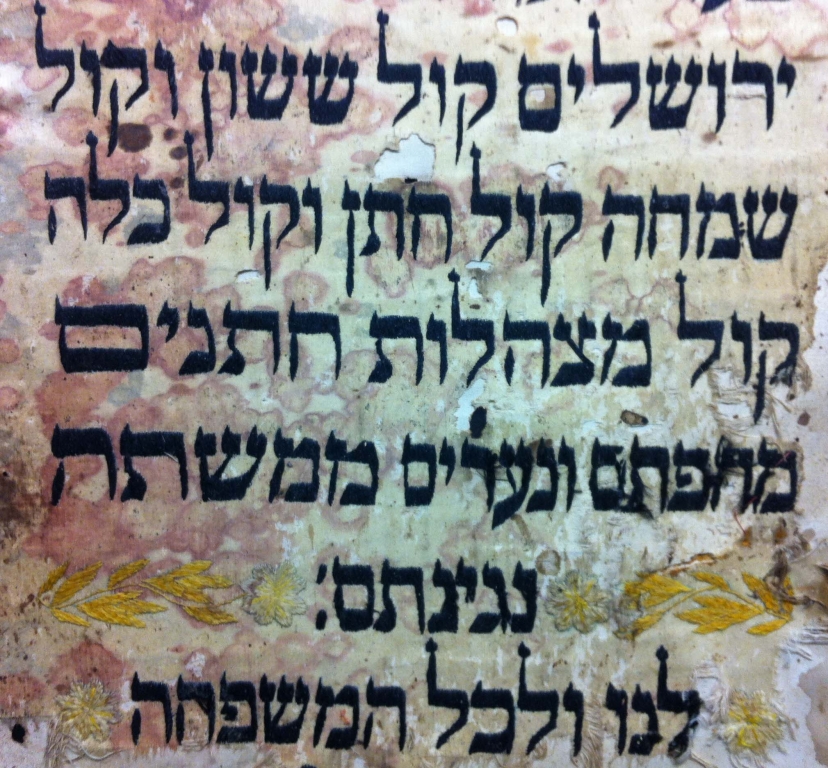 ירושלים קול ששון וקול
שמחה קול חתן וקול כלה
קול מצהלות חתנים
מחפתם ונערים ממשתה
נגינתם:
לנו ולכל המשפחה